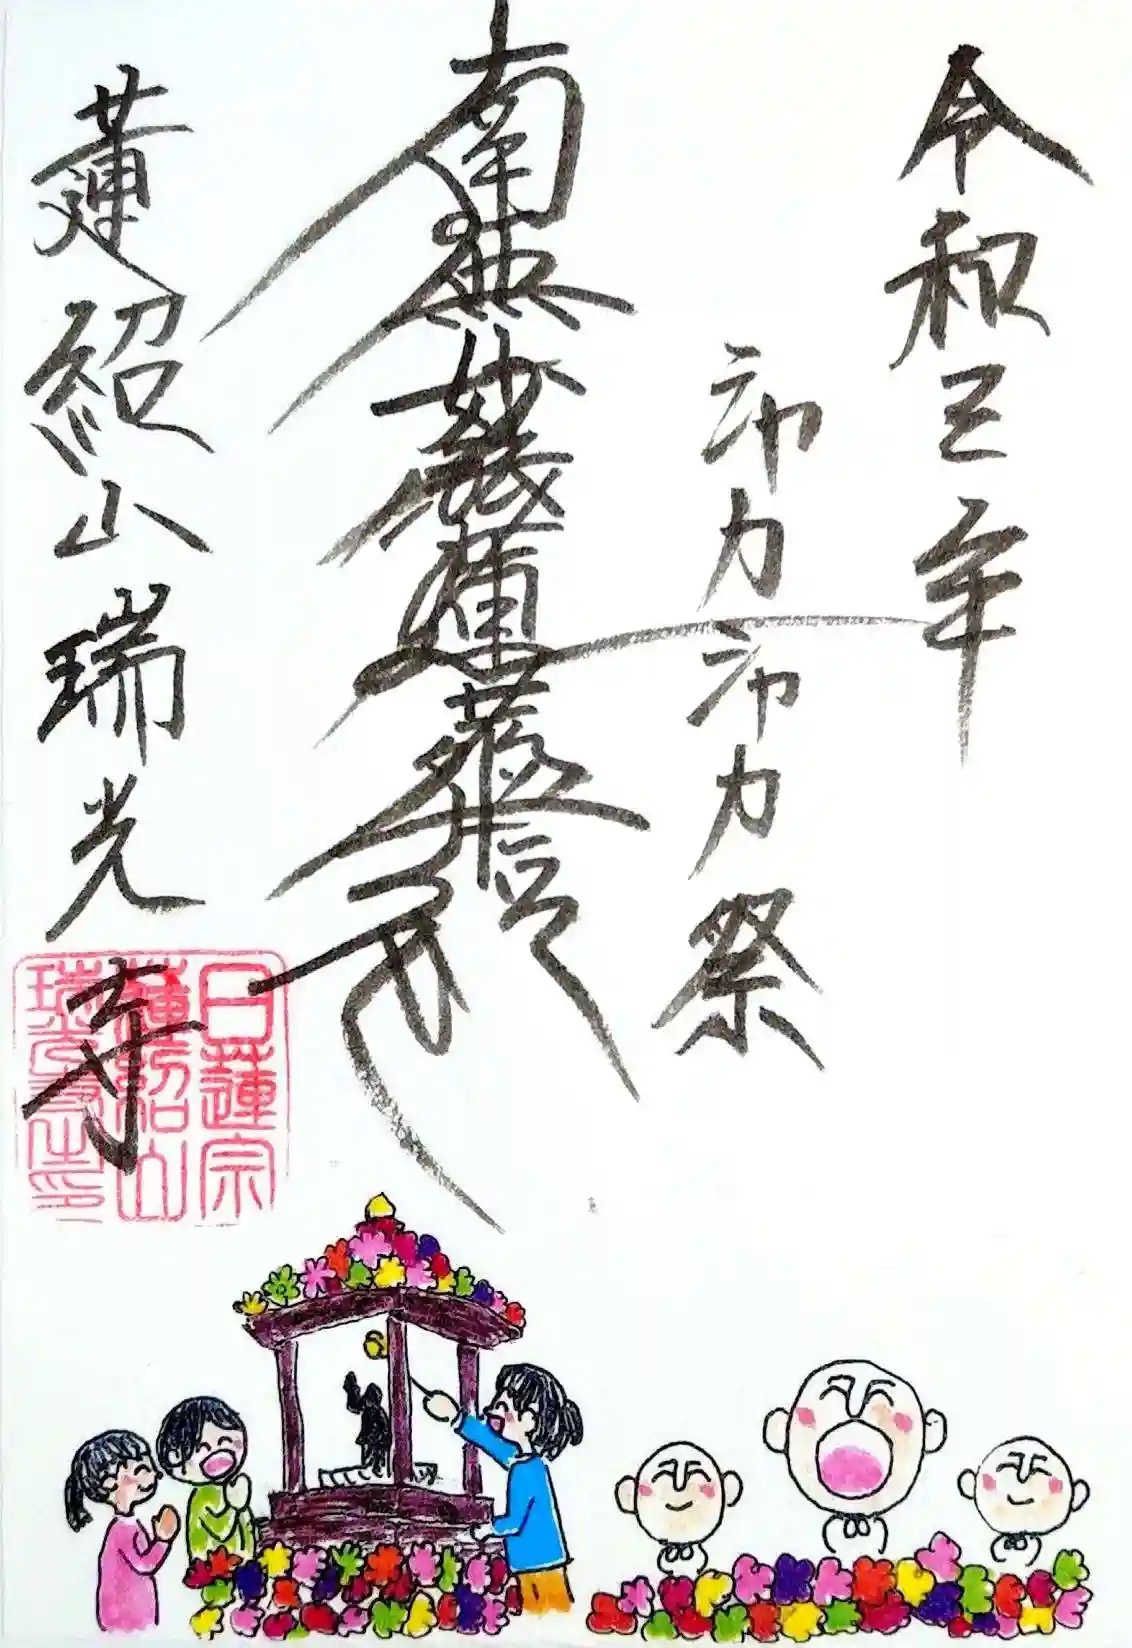 令和三年
シャカシャカ祭
南無妙法蓮華経
蓮紹山瑞光寺
日蓮宗
蓮紹山
瑞光寺之印